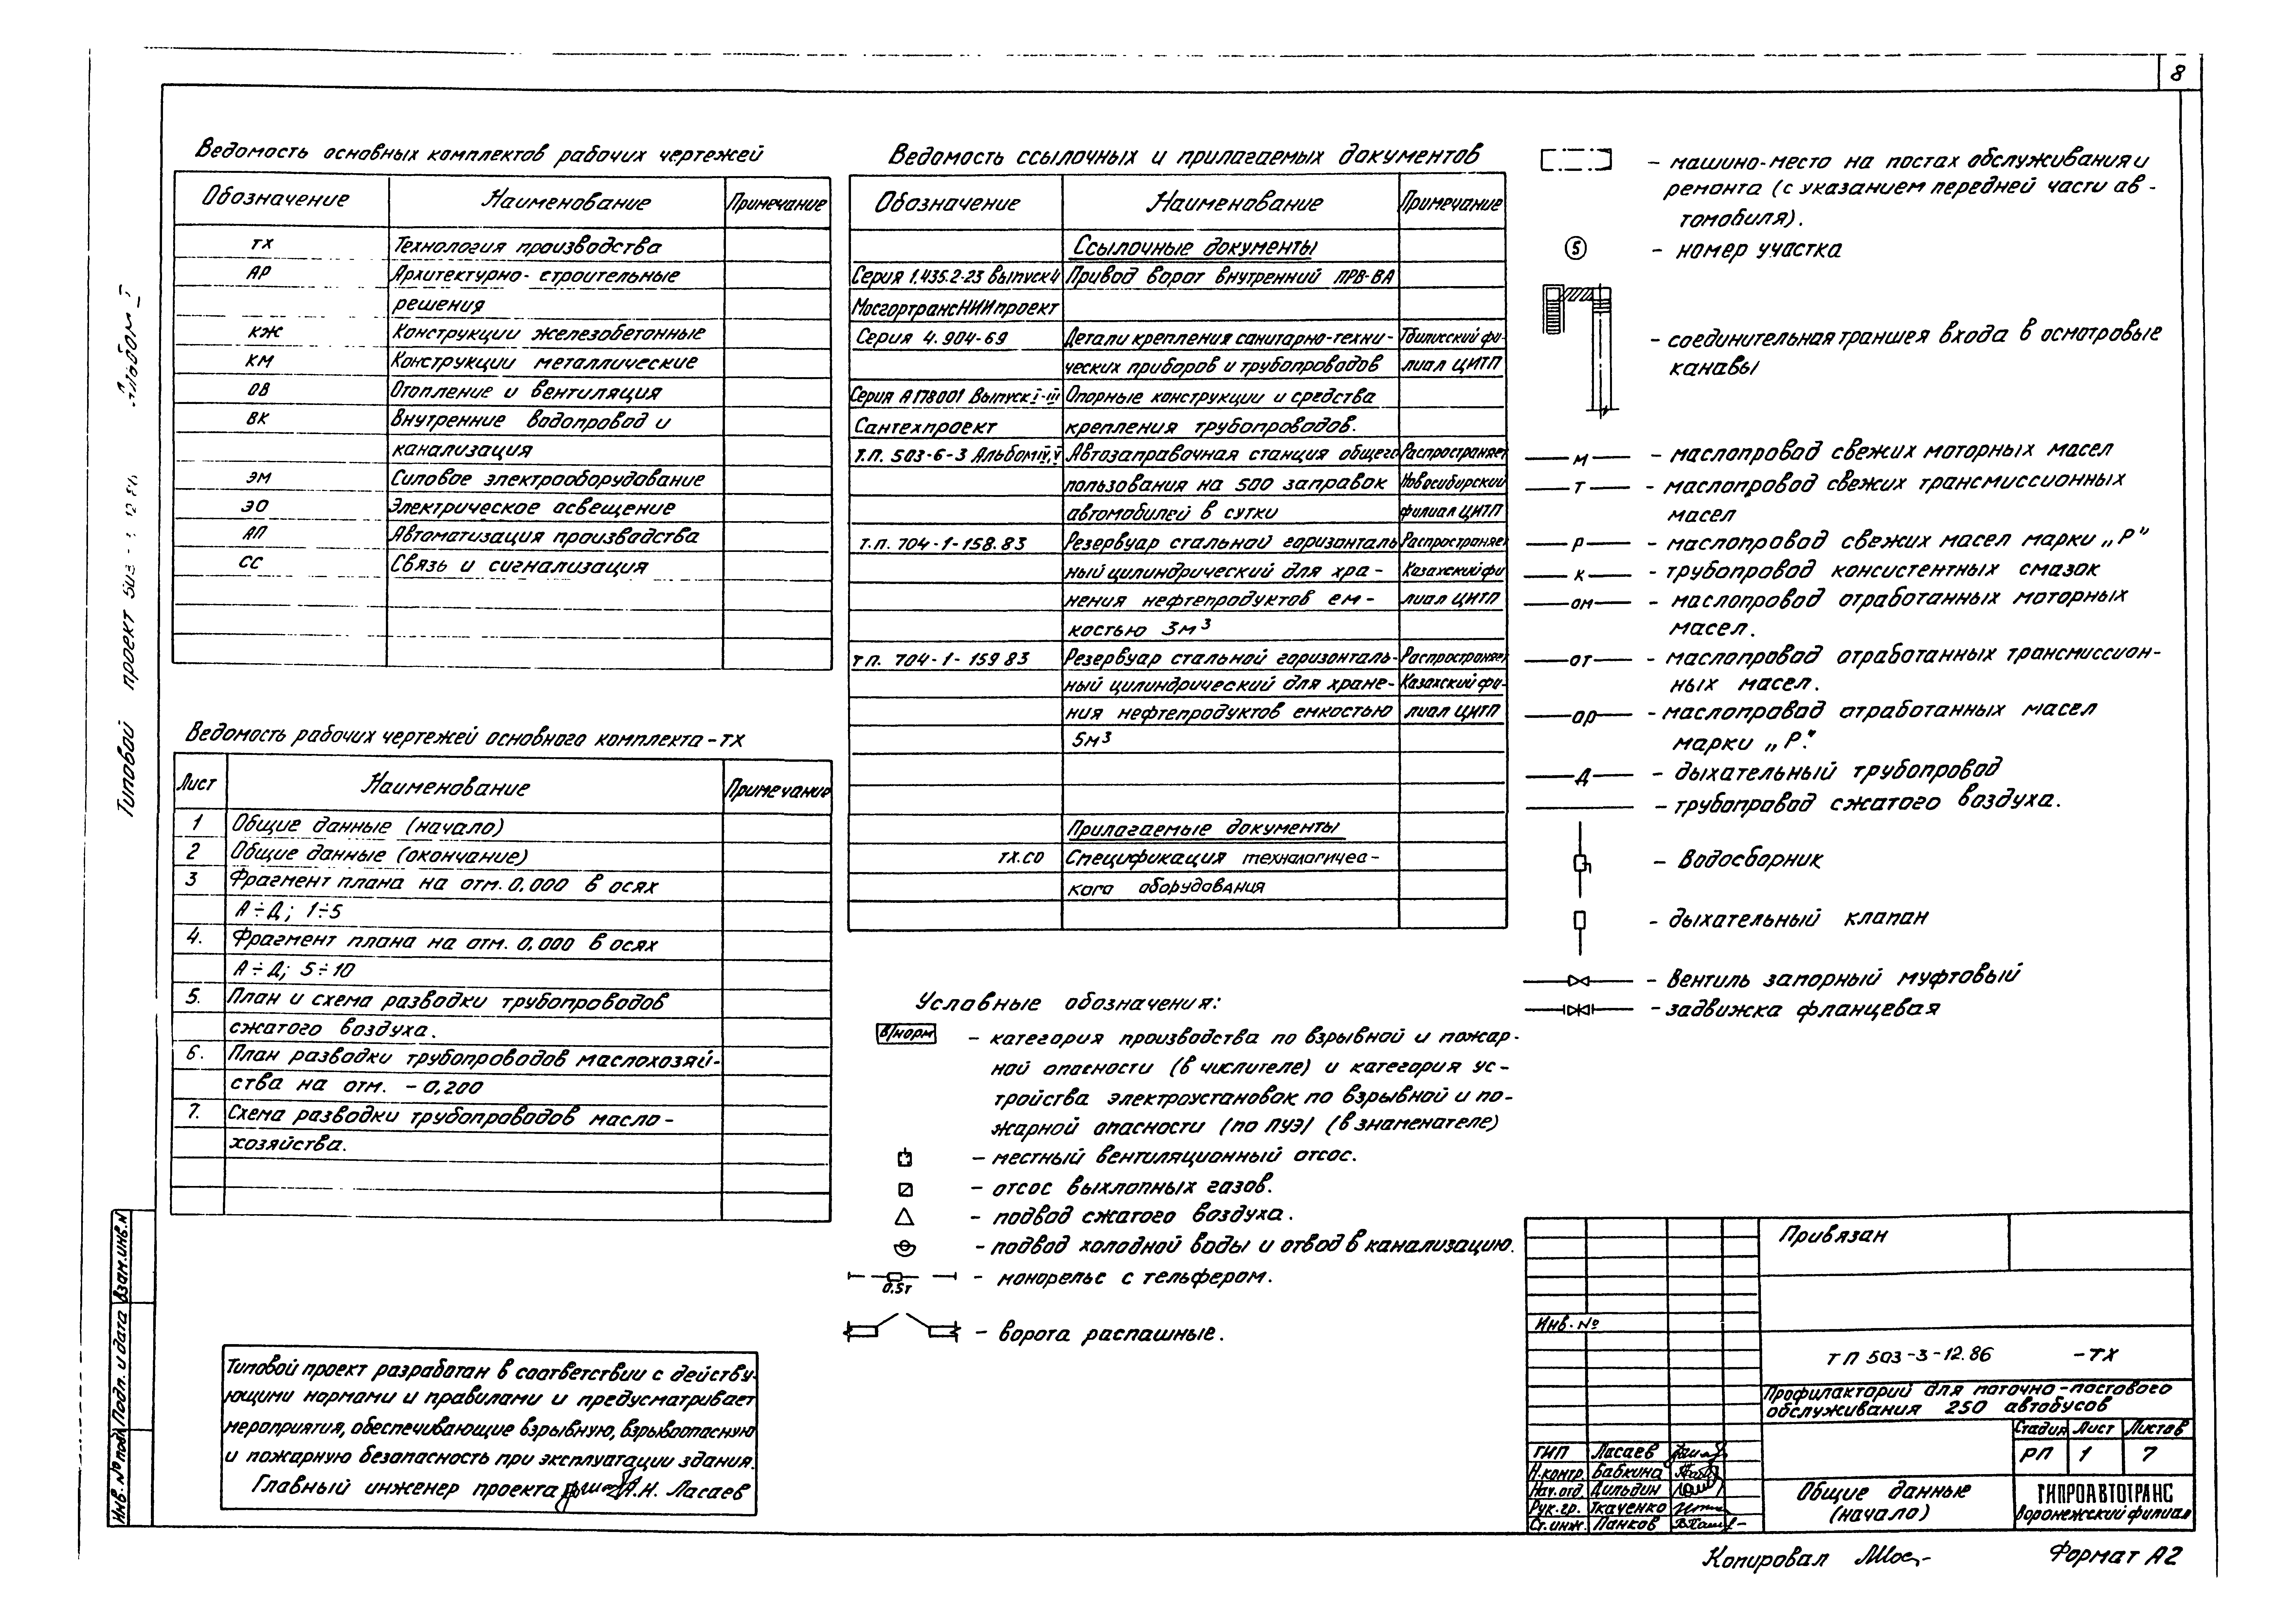 8
Ведомость основных комплектов рабочих чертежей
Обозначение Наименование Примечание
ТХ Технология производства
АР Архитектурно-строительные
решения
КЖ Конструкции железобетонные
КМ Конструкции металлические
ОВ Отопление и вентиляция
ВК Внутренние водопровод и
канализация
ЭМ Силовое электрооборудование
ЭО Электрическое освещение
АП Автоматизация производства
СС Связь и сигнализация
Ведомость рабочих чертежей основного комплекта - ТХ
Лист Наименование Примечание
1 Общие данные (начало)
2 Общие данные (окончание)
3 Фрагмент плана на отм. 0,000 в осях
А÷Д; 1÷5
4. Фрагмент плана на отм. 0,000 в осях
А÷Д; 5÷10
5. План и схема разводки трубопроводов
сжатого воздуха.
6. План разводки трубопроводов маслохозяй-
ства на отм. -0,200
7. Схема разводки трубопроводов масло-
хозяйства.
Типовой проект разработан в соответствии с действу-
ющими нормами и правилами и предусматривает
мероприятия, обеспечивающие взрывную, взрывоопасную
и пожарную безопасность при эксплуатации здания.
Главный инженер проекта А.Н. Ласаев
Ведомость ссылочных и прилагаемых документов
Обозначение Наименование Примечание
Ссылочные документы
Серия 1.435.2-23 выпуск 4 Привод ворот внутренний ПРВ-ВА
МосгортрансНИИпроект
Серия 4.904-69 Детали крепления санитарно-техни- Тбилисский фи-
ческих приборов и трубопроводов лиал ЦИТП
Серия А178001 Выпуск I-III Опорные конструкции и средства
Сантехпроект крепления трубопроводов.
Т.П. 503-6-3 Альбом IV, V Автозаправочная станция общего Распространяет
пользования на 500 заправок Новосибирский
автомобилей в сутки филиал ЦИТП
Т.П. 704-1-158.83 Резервуар стальной горизонталь Распространяет
ный цилиндрический для хра- Казахский фи
нения нефтепродуктов ем- лиал ЦИТП
костью 3м³
Т П. 704-1-159 83 Резервуар стальной горизонталь- Распространяет
ный цилиндрический для хране- Казахский фи-
ния нефтепродуктов емкостью лиал ЦИТП
5м³
Прилагаемые документы
ТХ.СО Спецификация технологичес-
кого оборудования
Условные обозначения:
В/норм - категория производства по взрывной и пожар-
ной опасности (в числителе) и категория ус-
тройства электроустановок по взрывной и по-
жарной опасности (по ПУЭ) (в знаменателе)
- местный вентиляционный отсос.
- отсос выхлопных газов.
- подвод сжатого воздуха.
- подвод холодной воды и отвод в канализацию.
0.5т - монорельс с тельфером.
- ворота распашные.
- машино-место на постах обслуживания и
ремонта (с указанием передней части ав-
томобиля).
5 - номер участка
- соединительная траншея входа в осмотровые
канавы
м - маслопровод свежих моторных масел
т - маслопровод свежих трансмиссионных
масел
р - маслопровод свежих масел марки „Р"
к - трубопровод консистентных смазок
ом - маслопровод отработанных моторных
масел.
от - маслопровод отработанных трансмиссион-
ных масел.
ор - маслопровод отработанных масел
марки „Р".
д - дыхательный трубопровод
- трубопровод сжатого воздуха.
- Водосборник
- дыхательный клапан
- Вентиль запорный муфтовый
- задвижка фланцевая
Привязан
Инв. №
ТП 503-3-12.86 -ТХ
Профилакторий для поточно-постового
обслуживания 250 автобусов
Стадия Лист Листов
РП 1 7
ГИП Ласаев
Н.контр. Бабкина
Нач.отд. Дильдин
Рук.гр. Ткаченко
Ст.инж. Панков
Общие данные
(начало)
ГИПРОАВТОТРАНС
Воронежский филиал
Копировал
Формат А2
Типовой проект 503-3-12.86 Альбом I
Инв. № подл. Подп. и дата Взам.инв.№